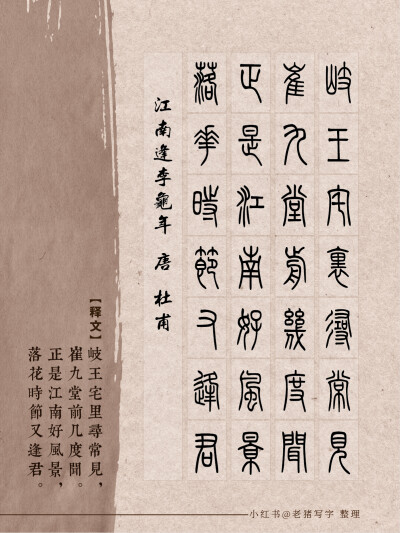 岐王宅裏尋常見
崔九堂前幾度聞
正是江南好風景
落華時節又逢君
江南逢李龜年 唐 杜甫
【释文】岐王宅里尋常見，
崔九堂前几度聞。
正是江南好風景，
落花時節又逢君。
小红书@老猪写字 整理